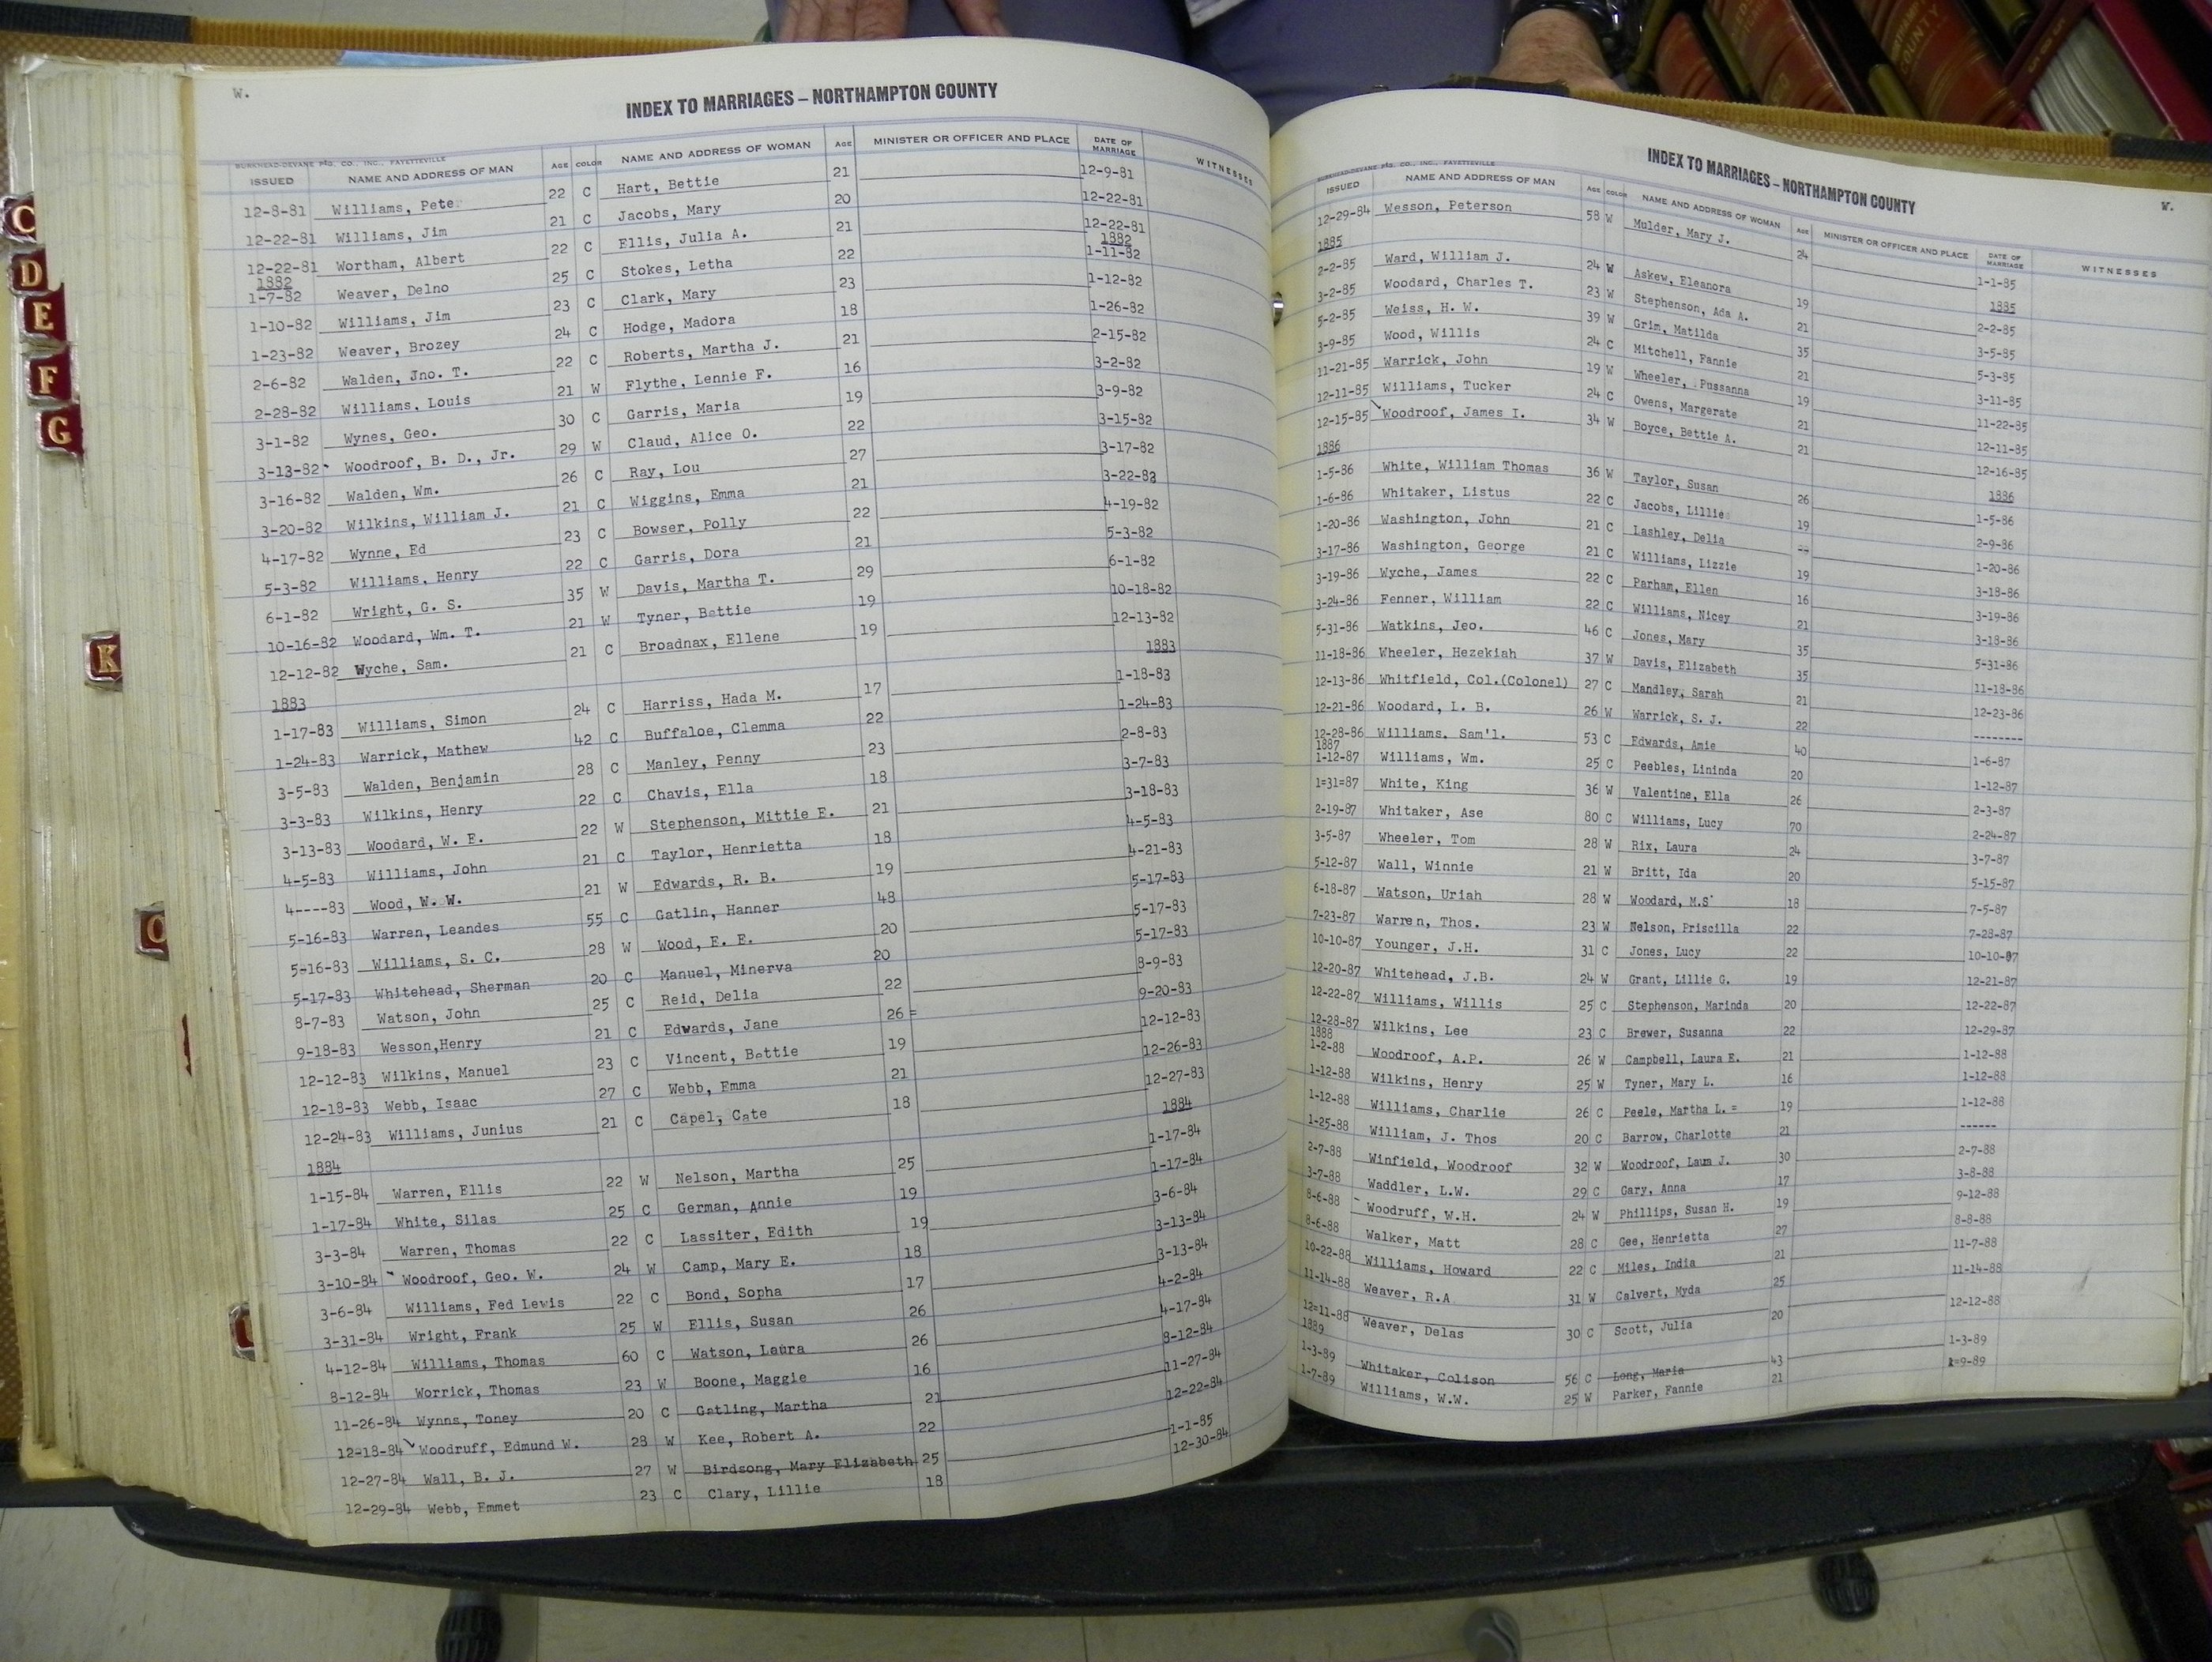 W.
INDEX TO MARRIAGES – NORTHAMPTON COUNTY
BURKHEAD-DEVANE PTG. CO., INC., FAYETTEVILLE
ISSUED NAME AND ADDRESS OF MAN AGE COLOR NAME AND ADDRESS OF WOMAN AGE MINISTER OR OFFICER AND PLACE DATE OF MARRIAGE WITNESSES
12-8-81 Williams, Pete 22 C Hart, Bettie 21 12-9-81
12-22-81 Williams, Jim 21 C Jacobs, Mary 20 12-22-81
12-22-81 Wortham, Albert 22 C Ellis, Julia A. 21 12-22-81
1882 1882
1-7-82 Weaver, Delno 25 C Stokes, Letha 22 1-11-82
1-10-82 Williams, Jim 23 C Clark, Mary 23 1-12-82
1-23-82 Weaver, Brozey 24 C Hodge, Madora 18 1-26-82
2-6-82 Walden, Jno. T. 22 C Roberts, Martha J. 21 2-15-82
2-28-82 Williams, Louis 21 W Flythe, Lennie F. 16 3-2-82
3-1-82 Wynes, Geo. 30 C Garris, Maria 19 3-9-82
3-13-82 Woodroof, B. D., Jr. 29 W Claud, Alice O. 22 3-15-82
3-16-82 Walden, Wm. 26 C Ray, Lou 27 3-17-82
3-20-82 Wilkins, William J. 21 C Wiggins, Emma 21 3-22-82
4-17-82 Wynne, Ed 23 C Bowser, Polly 22 4-19-82
5-3-82 Williams, Henry 22 C Garris, Dora 21 5-3-82
6-1-82 Wright, G. S. 35 W Davis, Martha T. 29 6-1-82
10-16-82 Woodard, Wm. T. 21 W Tyner, Bettie 19 10-18-82
12-12-82 Wyche, Sam. 21 C Broadnax, Ellene 19 12-13-82
1883 1883
1-17-83 Williams, Simon 24 C Harriss, Hada M. 17 1-18-83
1-24-83 Warrick, Mathew 42 C Buffaloe, Clemma 22 1-24-83
3-5-83 Walden, Benjamin 28 C Manley, Penny 23 2-8-83
3-3-83 Wilkins, Henry 22 C Chavis, Ella 18 3-7-83
3-13-83 Woodard, W. E. 22 W Stephenson, Mittie E. 21 3-18-83
4-5-83 Williams, John 21 C Taylor, Henrietta 18 4-5-83
4----83 Wood, W. W. 21 W Edwards, R. B. 19 4-21-83
5-16-83 Warren, Leandes 55 C Gatlin, Hanner 48 5-17-83
5-16-83 Williams, S. C. 28 W Wood, E. E. 20 5-17-83
5-17-83 Whitehead, Sherman 20 C Manuel, Minerva 20 5-17-83
8-7-83 Watson, John 25 C Reid, Delia 22 8-9-83
9-18-83 Wesson,Henry 21 C Edwards, Jane 26= 9-20-83
12-12-83 Wilkins, Manuel 23 C Vincent, Bettie 19 12-12-83
12-18-83 Webb, Isaac 27 C Webb, Emma 21 12-26-83
12-24-83 Williams, Junius 21 C Capel, Cate 18 12-27-83
1884 1884
1-15-84 Warren, Ellis 22 W Nelson, Martha 25 1-17-84
1-17-84 White, Silas 25 C German, Annie 19 1-17-84
3-3-84 Warren, Thomas 22 C Lassiter, Edith 19 3-6-84
3-10-84 Woodroof, Geo. W. 24 W Camp, Mary E. 18 3-13-84
3-6-84 Williams, Fed Lewis 22 C Bond, Sopha 17 3-13-84
3-31-84 Wright, Frank 25 W Ellis, Susan 26 4-2-84
4-12-84 Williams, Thomas 60 C Watson, Laura 26 4-17-84
8-12-84 Worrick, Thomas 23 W Boone, Maggie 16 8-12-84
11-26-84 Wynns, Toney 20 C Gatling, Martha 21 11-27-84
12-18-84 Woodruff, Edmund W. 28 W Kee, Robert A. 22 12-22-84
12-27-84 Wall, B. J. 27 W Birdsong, Mary Elizabeth 25 1-1-85
12-29-84 Webb, Emmet 23 C Clary, Lillie 18 12-30-84
INDEX TO MARRIAGES – NORTHAMPTON COUNTY
W.
BURKHEAD-DEVANE PTG. CO., INC., FAYETTEVILLE
ISSUED NAME AND ADDRESS OF MAN AGE COLOR NAME AND ADDRESS OF WOMAN AGE MINISTER OR OFFICER AND PLACE DATE OF MARRIAGE WITNESSES
12-29-84 Wesson, Peterson 58 W Mulder, Mary J. 24 1-1-85
1885 1885
2-2-85 Ward, William J. 24 W Askew, Eleanora 19 2-2-85
3-2-85 Woodard, Charles T. 23 W Stephenson, Ada A. 21 3-5-85
5-2-85 Weiss, H. W. 39 W Grim, Matilda 35 5-3-85
3-9-85 Wood, Willis 24 C Mitchell, Fannie 21 3-11-85
11-21-85 Warrick, John 19 W Wheeler, Pussanna 19 11-22-85
12-11-85 Williams, Tucker 24 C Owens, Margerate 21 12-11-85
12-15-85 Woodroof, James I. 34 W Boyce, Bettie A. 21 12-16-85
1886 1886
1-5-86 White, William Thomas 36 W Taylor, Susan 26 1-5-86
1-6-86 Whitaker, Listus 22 C Jacobs, Lillie 19 2-9-86
1-20-86 Washington, John 21 C Lashley, Delia -- 1-20-86
3-17-86 Washington, George 21 C Williams, Lizzie 19 3-18-86
3-19-86 Wyche, James 22 C Parham, Ellen 16 3-19-86
3-24-86 Fenner, William 22 C Williams, Nicey 21 3-18-86
5-31-86 Watkins, Jeo. 46 C Jones, Mary 35 5-31-86
11-18-86 Wheeler, Hezekiah 37 W Davis, Elizabeth 35 11-18-86
12-13-86 Whitfield, Col.(Colonel) 27 C Mandley, Sarah 21 12-23-86
12-21-86 Woodard, L. B. 26 W Warrick, S. J. 22 --------
12-28-86 Williams. Sam'l. 53 C Edwards, Amie 40 1-6-87
1887
1-12-87 Williams, Wm. 25 C Peebles, Lininda 20 1-12-87
1=31=87 White, King 36 W Valentine, Ella 26 2-3-87
2-19-87 Whitaker, Ase 80 C Williams, Lucy 70 2-24-87
3-5-87 Wheeler, Tom 28 W Rix, Laura 24 3-7-87
5-12-87 Wall, Winnie 21 W Britt, Ida 20 5-15-87
6-18-87 Watson, Uriah 28 W Woodard, M.S 18 7-5-87
7-23-87 Warren, Thos. 23 W Nelson, Priscilla 22 7-28-87
10-10-87 Younger, J.H. 31 C Jones, Lucy 22 10-10-87
12-20-87 Whitehead, J.B. 24 W Grant, Lillie G. 19 12-21-87
12-22-87 Williams, Willis 25 C Stephenson, Marinda 20 12-22-87
12-28-87 Wilkins, Lee 23 C Brewer, Susanna 22 12-29-87
1888
1-2-88 Woodroof, A.P. 26 W Campbell, Laura E. 21 1-12-88
1-12-88 Wilkins, Henry 25 W Tyner, Mary L. 16 1-12-88
1-12-88 Williams, Charlie 26 C Peele, Martha L. = 19 1-12-88
1-25-88 William, J. Thos 20 C Barrow, Charlotte 21 ------
2-7-88 Winfield, Woodroof 32 W Woodroof, Laura J. 30 2-7-88
3-7-88 Waddler, L.W. 29 C Gary, Anna 17 3-8-88
8-6-88 Woodruff, W.H. 24 W Phillips, Susan H. 19 9-12-88
8-6-88 Walker, Matt 28 C Gee, Henrietta 27 8-8-88
10-22-88 Williams, Howard 22 C Miles, India 21 11-7-88
11-14-88 Weaver, R.A 31 W Calvert, Myda 25 11-14-88
12=11-88 Weaver, Delas 30 C Scott, Julia 20 12-12-88
1889
1-3-89 Whitaker, Colison 56 C Long, Maria 43 1-3-89
1-7-89 Williams, W.W. 25 W Parker, Fannie 21 1=9-89
C
D
E
F
G
K
O
COUNTY